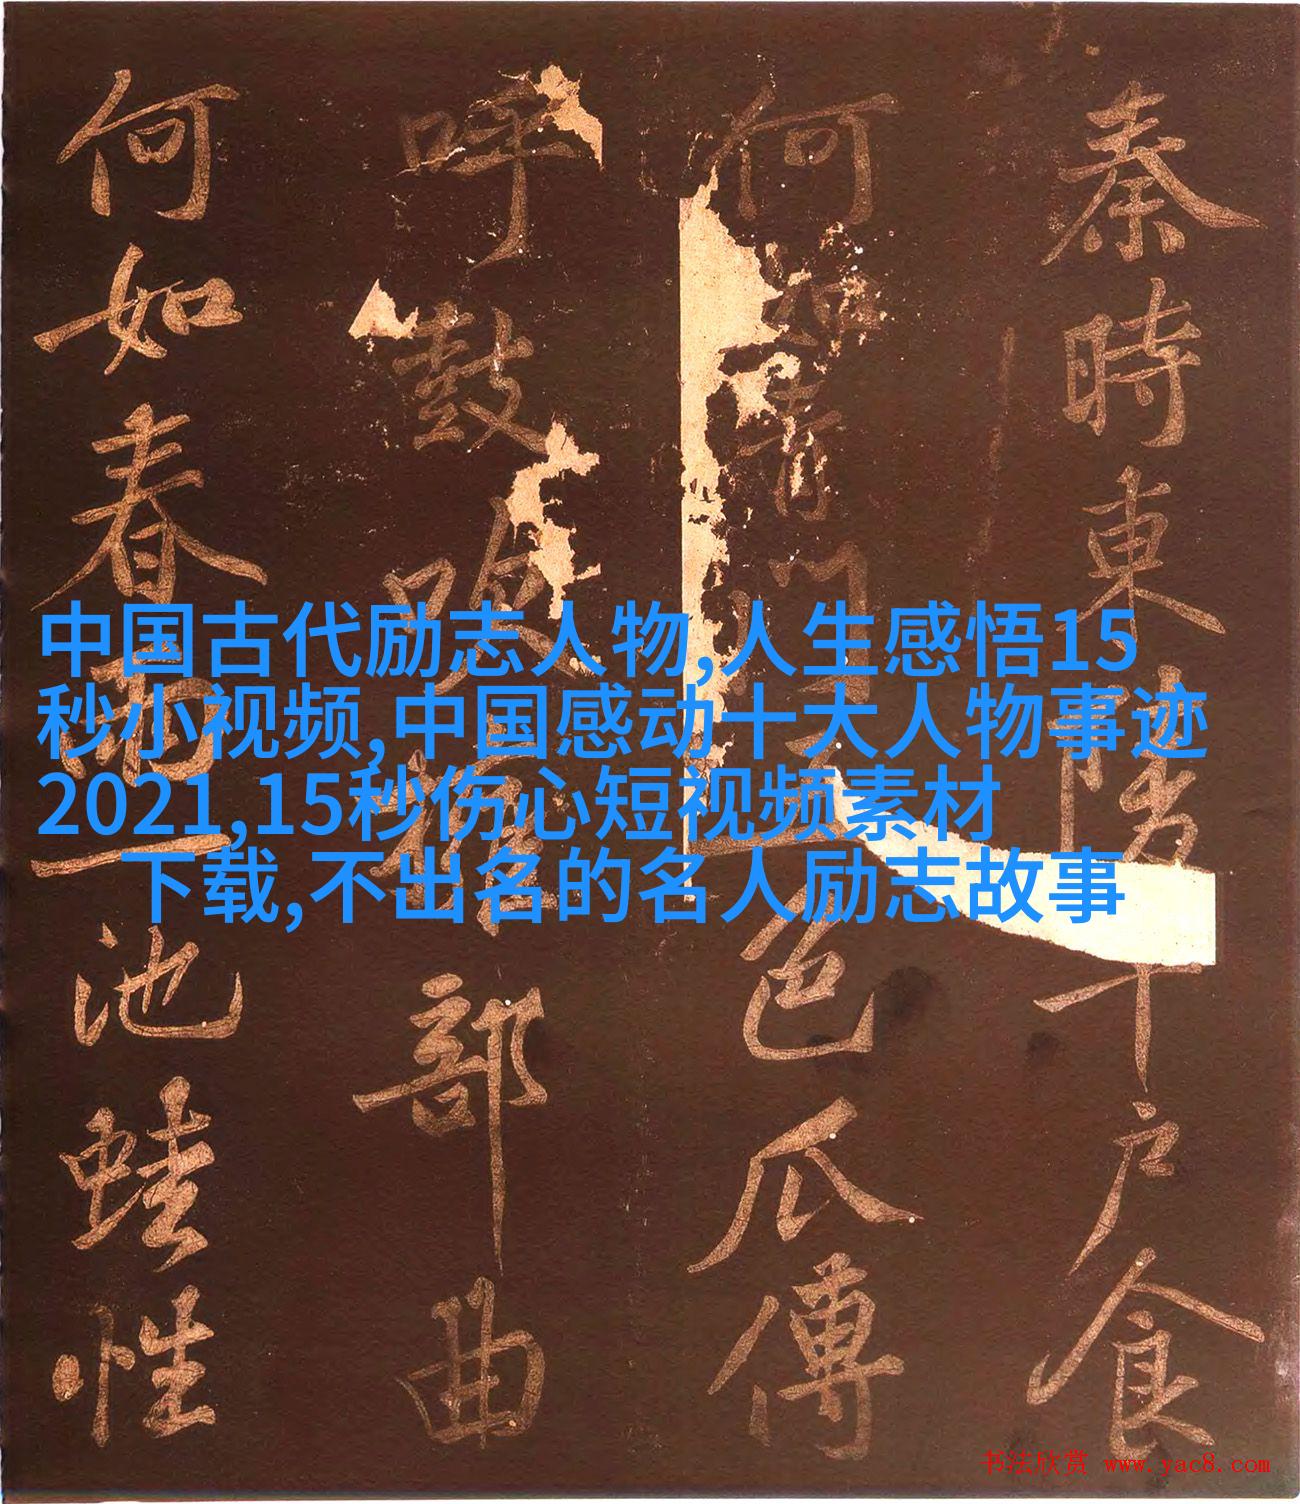 秦時東陵千戶食
何如青門色瓜傳
呼鼓吹部曲
何如春雨一池蛙性
中国古代励志人物,人生感悟15
秒小视频,中国感动十大人物事迹
2021,15秒伤心短视频素材
下载,不出名的名人励志故事
书法欣赏 www.yac8.com